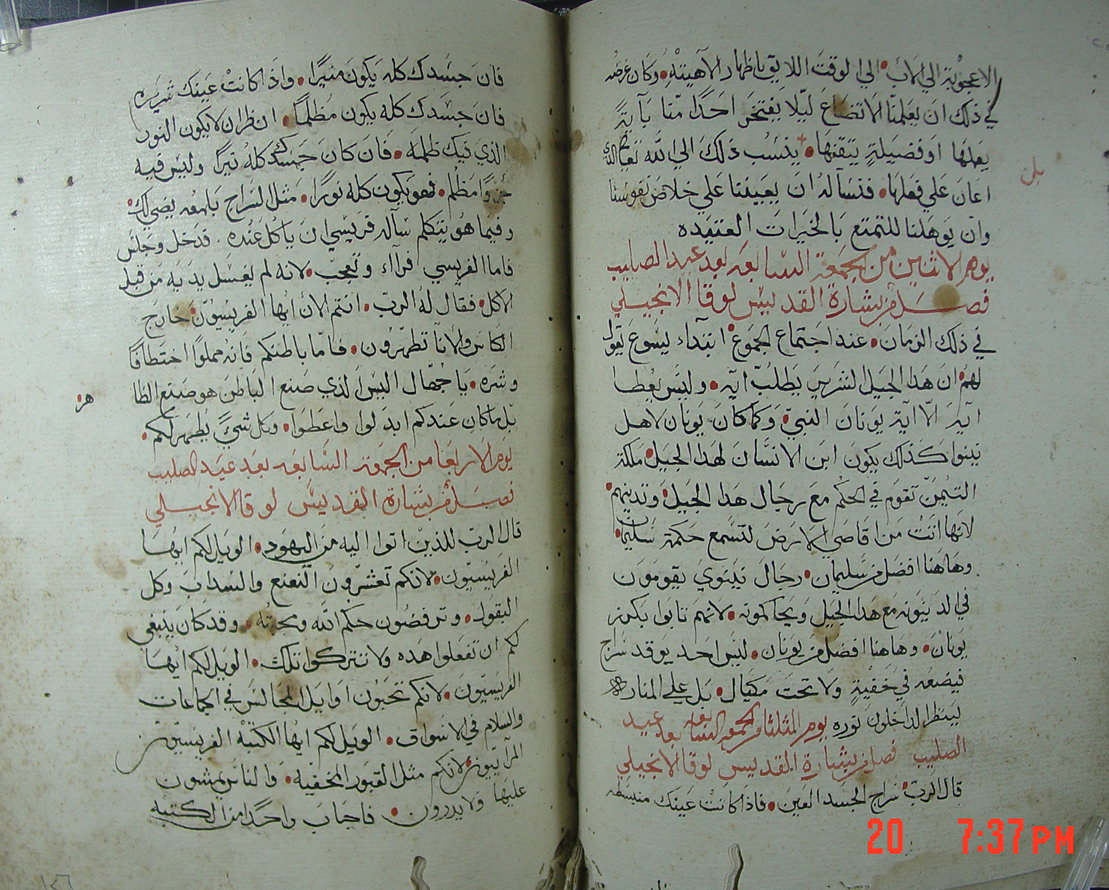 الاعجوبة الى الاب • الى الوقت اللايق باظهار الاهيته • وكان غرضه
في ذلك ان يعلمنا الاتضاع ليلا يفتخر احدا منا باية
يعملها او فضيلة يتقنها • ينسب ذلك الى الله تعالى الذي
اعان على فعلها • فنساله ان يعيننا على خلاص نفوسنا
وان يوهلنا للتمتع بالخيرات العتيده
يوم الاثنين من الجمعة السابعه بعد عيد الصليب
فصل من بشارة القديس لوقا الانجيلي
في ذلك الزمان • عند اجتماع الجموع ابتداء يسوع يقول
لهم ان هذا الجيل لشرير يطلب ايه • وليس يعطا
اية الا اية يونان النبي • وكما كان يونان لاهل
نينوا كذلك يكون ابن الانسان لهذا الجيل • ملكة
التيمن تقوم في الحكم مع رجال هذا الجيل • وتدينهم •
لانها اتت من اقاصي الارض لتسمع حكمة سليمان •
وهاهنا افضل من سليمان • رجال نينوي يقومون
في الدينونه مع هذا الجيل ويحاكمونه • لانهم تابوا بكرز
يونان • وهاهنا افضل من يونان • ليس احد يوقد سراج
فيضعه في خفية ولا تحت مكيال • بل على المناره
لينظر الداخلون نوره يوم الثلثا من الجمعه السابعه بعد عيد
الصليب فصل من بشارة القديس لوقا الانجيلي
قال الرب • سراج الجسد العين • فاذا كانت عينك منبسطه
فان جسدك كله يكون منيرا • واذا كانت عينك شريره
فان جسدك كله يكون مظلما • انظر ان لا يكون النور
الذي فيك ظلمه • فان كان جسدك كله نيرا وليس فيه
جزوا مظلم • فهو يكون كله نورا • مثل السراج بلمعه يضي لك
وفيما هو يتكلم ساله فريسي ان ياكل عنده • فدخل وجلس
فاما الفريسي فراء وتعجب • لانه لم يغسل يديه من قبل
الاكل • فقال له الرب • انتم الان ايها الفريسيون • خارج
الكاس والانا تطهرون • فاما باطنكم فانه مملوا اختطافا
وشره • يا جهال اليس الذي صنع الباطن هو صنع الظا
هر
بل ما كان عندكم ابدلوا واعطوا • وكل شي يطهر لكم •
يوم الاربعا من الجمعة السابعه بعد عيد الصليب
فصل من بشارة القديس لوقا الانجيلي
قال الرب للذين اتوا اليه من اليهود • الويل لكم ايها
الفريسيون • لانكم تعشرون النعنع والسداب وكل
البقول • وترفضون حكم الله ومحبته • وقد كان ينبغي
لكم ان تفعلوا هذه ولا تتركوا تلك • الويل لكم ايها
الفريسيون • لانكم تحبون اوايل المجالس في الجماعات
والسلام في الاسواق • الويل لكم ايها الكتبة الفريسيين
المرآييون • لانكم مثل القبور المخفيه • والناس يمشون
عليها ولا يدرون • فاجاب واحدا من الكتبه
20 7:37 PM